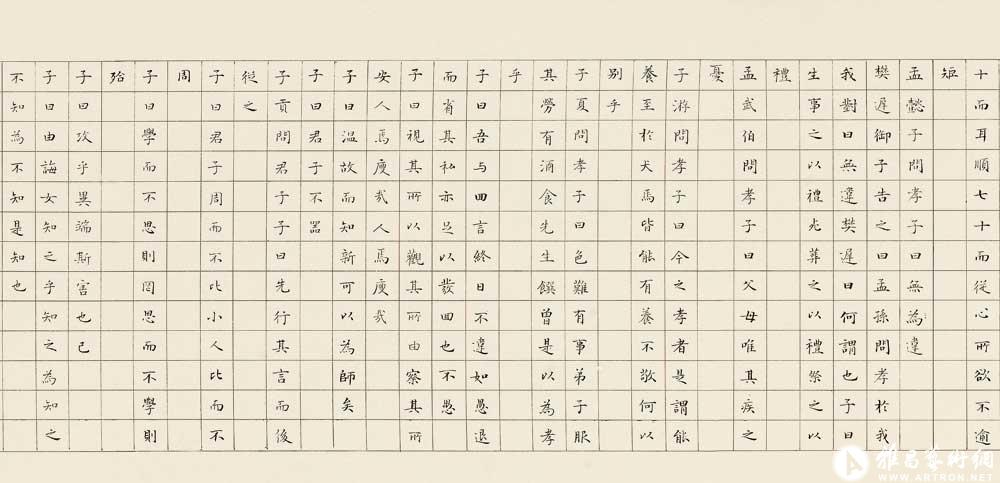 十而耳順七十而從心所欲不逾
矩
孟懿子問孝子曰無為違
樊遲御子告之曰孟孫問孝於我
我對曰無違樊遲曰何謂也子曰
生事之以禮死葬之以禮祭之以
禮
孟武伯問孝子曰父母唯其疾之
憂
子游問孝子曰今之孝者是謂能
養至於犬馬皆能有養不敬何以
別乎
子夏問孝子曰色難有事弟子服
其勞有酒食先生饌曾是以為孝
乎
子曰吾与回言終日不違如愚退
而省其私亦足以發回也不愚
子曰視其所以觀其所由察其所
安人焉廋哉人焉廋哉
子曰温故而知新可以為師矣
子曰君子不器
子貢問君子子曰先行其言而後
從之
子曰君子周而不比小人比而不
周
子曰學而不思則罔思而不學則
殆
子曰攻乎異端斯害也已
子曰由誨女知之乎知之為知之
不知為不知是知也
雅昌藝術網
WWW.ARTRON.NET